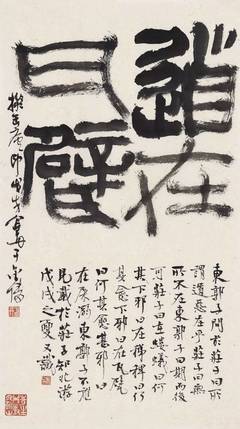 道在
瓦甓
擬缶廬
東郭子問於莊子曰所
謂道惡在乎莊子曰無
所不在東郭子曰期而後
可莊子曰在螻蟻曰何
其下邪曰在稊稗曰何
其愈下邪曰在瓦甓
曰何其愈甚邪曰
在屎溺東郭子不應
見載於莊子知北游
戊戌之夏又識